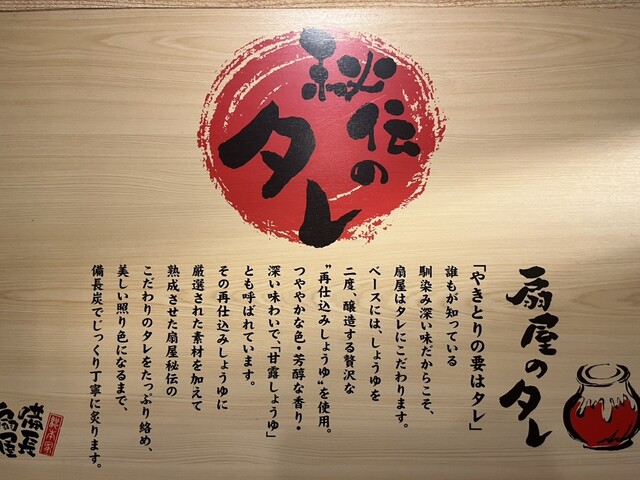 秘伝の
タレ
扇屋のタレ
「やきとりの要はタレ」
誰もが知っている
馴染み深い味だからこそ、
扇屋はタレにこだわります。
ベースには、しょうゆを
二度、醸造する贅沢な
"再仕込みしょうゆ"を使用。
つややかな色・芳醇な香り・
深い味わいで、「甘露しょうゆ」
とも呼ばれています。
その再仕込みしょうゆに
厳選された素材を加えて
熟成させた扇屋秘伝の
こだわりのタレをたっぷり絡め、
美しい照り色になるまで、
備長炭でじっくり丁寧に炙ります。
総本家
備長
扇屋